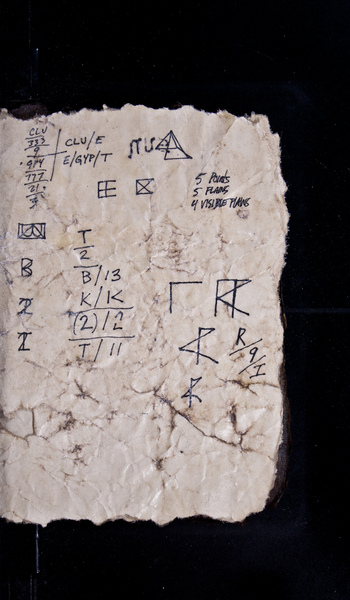 CLU
333
9
CLU/E
E/GYP/T
777
21.
3
5 Points
5 PLANS
4 VISIBLE PLANS
T
2
B/13
K/K
(2)/2
T/11
B
I
R
R/9/I